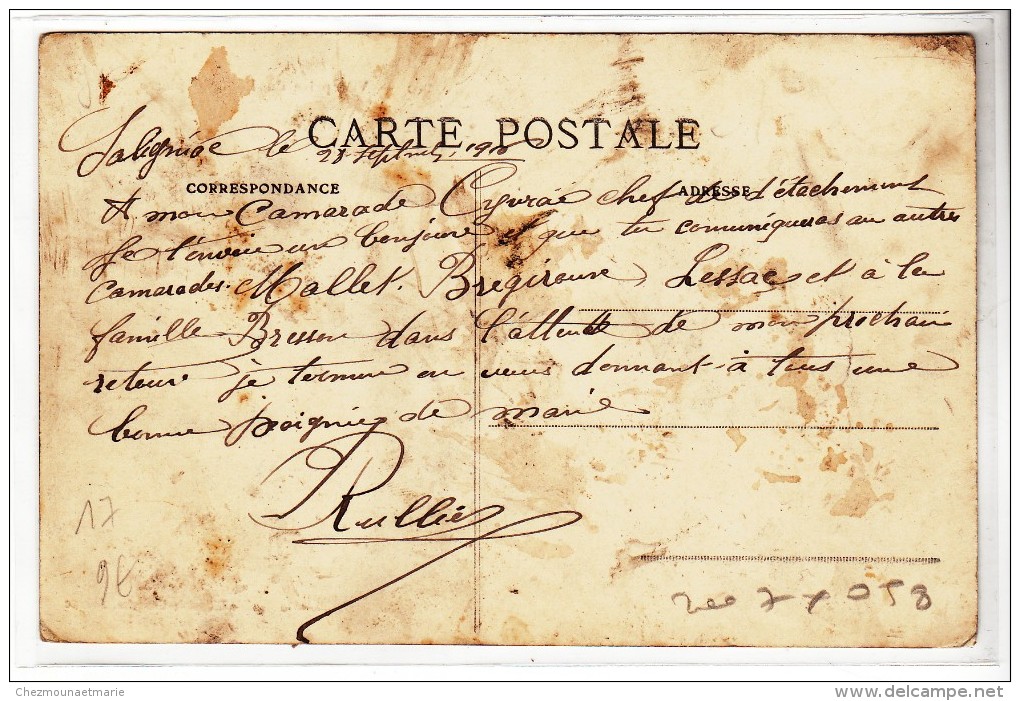 CARTE POSTALE
le 28 septembre 1918
CORRESPONDANCE
ADRESSE
A mon Camarade chef de détachement
Je t'envoie un bonjour et que tu comuniqueras au autres
Camarades. Mallet. Bregiroux Lessac et à la
famille Bresson dans l'attente de mon prochain
retour je termine en vous donnant à tous une
bonne poignié de main
Rullier
17
9€
Chezmounaetmarie
www.delcampe.net